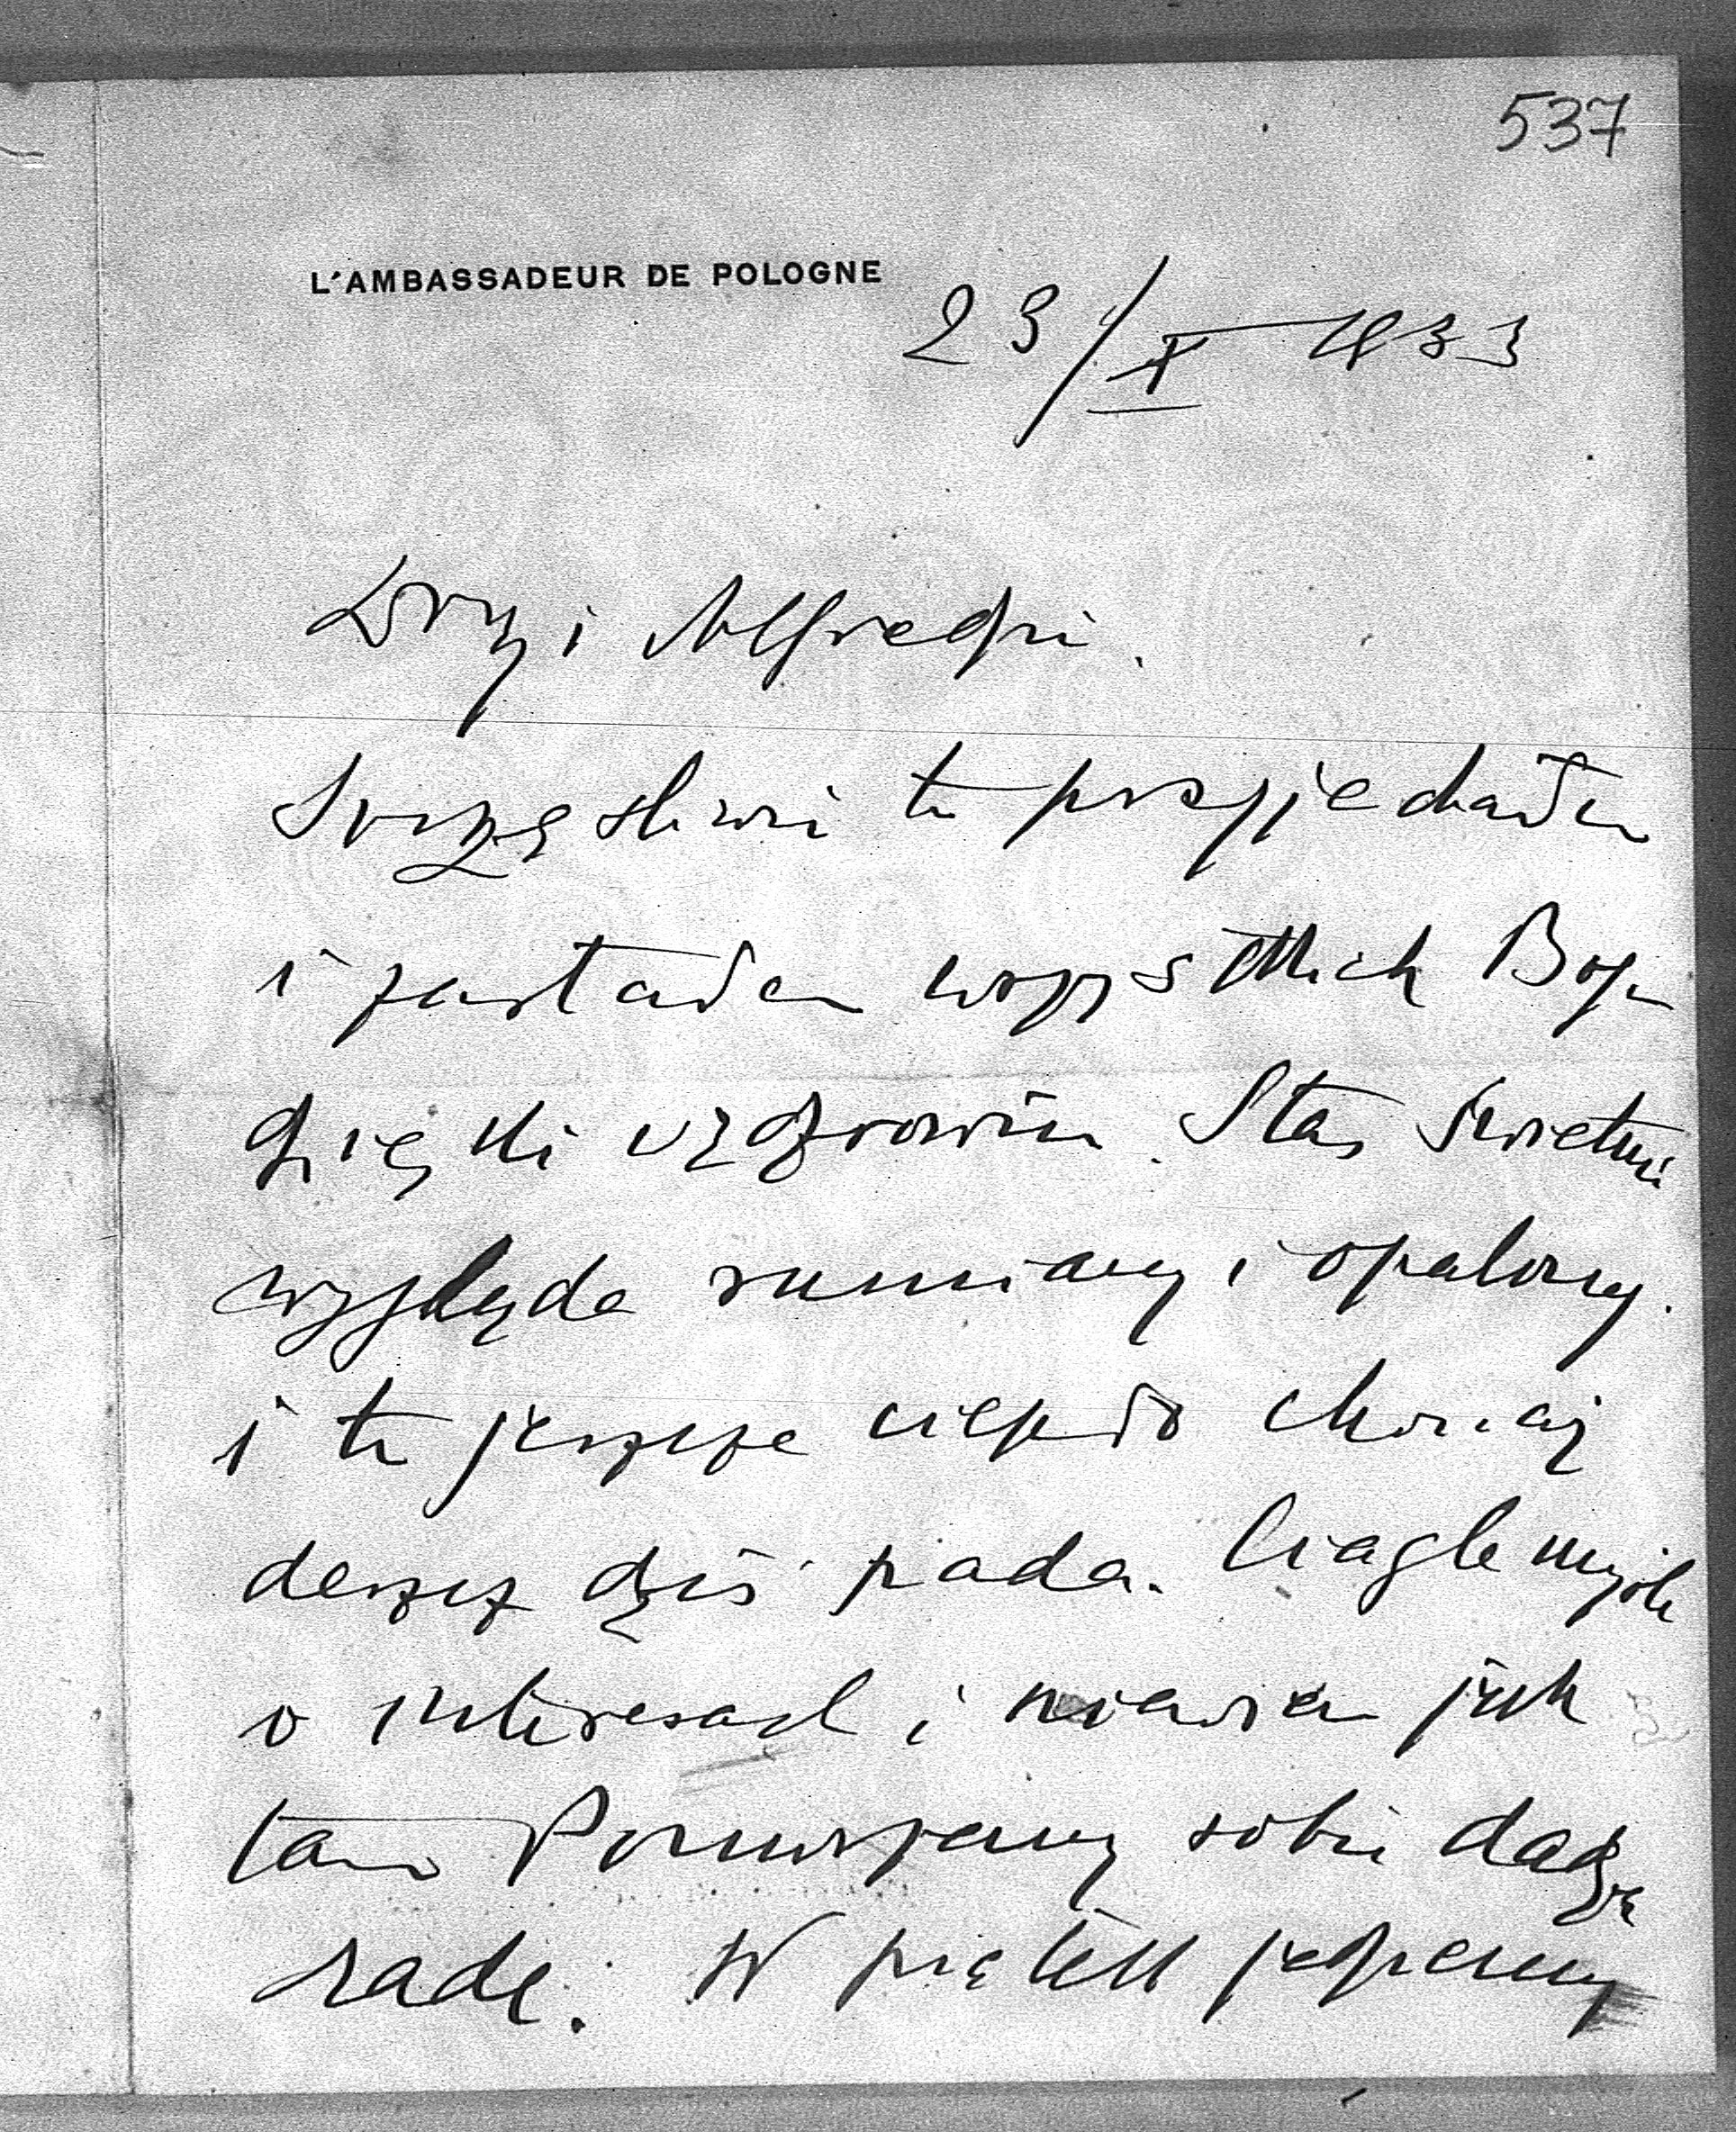 537
L'AMBASSADEUR DE POLOGNE
23/X 1933
Drogi Alfredzie.
Szczęśliwie tu przyjechałem
i zastałem wszystkich Bogu
dzięki w zdrowiu. Staś świetnie
wygląda rumiany i opalony.
i tu jeszcze ciepło chociaż
deszcz dziś pada. Ciągle myślę
o interesach i jak
tam sobie dadzą
radę. W piątek jedziemy